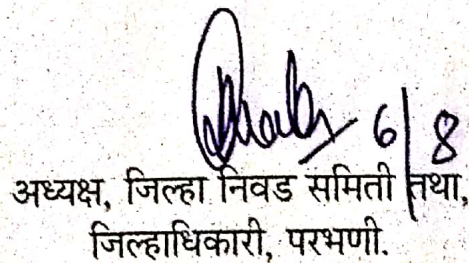 6/8
अध्यक्ष, जिल्हा निवड समिती तथा,
जिल्हाधिकारी, परभणी.